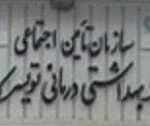 سازمان تأمین اجتماعی
بهداشتی درمانی تویسرک